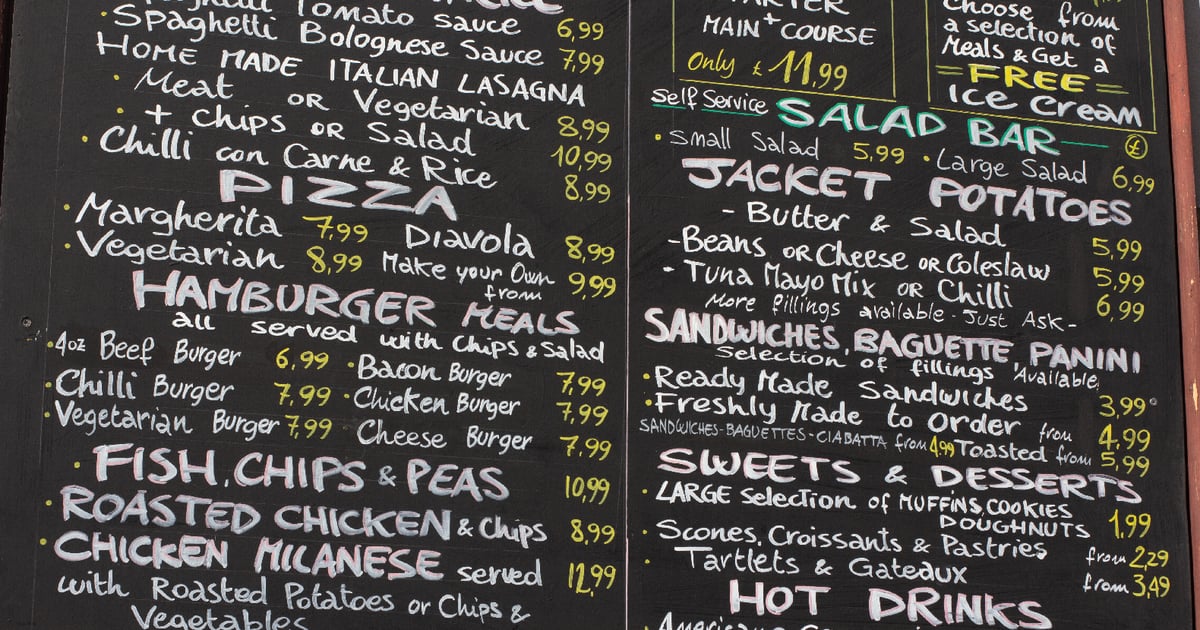 Tomato sauce 6,99
• Spaghetti Bolognese Sauce 7,99
HOME MADE ITALIAN LASAGNA
• Meat OR Vegetarian 8,99
• + chips OR Salad 10,99
• Chilli con Carne & Rice 8,99
PIZZA
• Margherita 7,99 Diavola 8,99
• Vegetarian 8,99 Make your Own from 9,99
HAMBURGER MEALS
all served with chips & salad
• 4oz Beef Burger 6,99 • Bacon Burger 7,99
• Chilli Burger 7,99 • Chicken Burger 7,99
• Vegetarian Burger 7,99 Cheese Burger 7.99
• FISH, CHIPS & PEAS 10,99
• ROASTED CHICKEN & Chips 8,99
• CHICKEN MILANESE served 12,99
with Roasted Potatoes or Chips &
Vegetables
MAIN + COURSE
Only £ 11,99
choose from
a selection of
Meals & Get a
= FREE =
ice cream
Self Service SALAD BAR £
• Small Salad 5,99 • Large Salad 6,99
JACKET POTATOES
- Butter & Salad 5,99
- Beans OR Cheese OR Coleslaw 5,99
- Tuna Mayo Mix OR Chilli 6,99
More fillings available - Just Ask -
SANDWICHES, BAGUETTE, PANINI
Selection of fillings Available
• Ready Made Sandwiches 3,99
• Freshly Made to Order from 4,99
SANDWICHES - BAGUETTES - CIABATTA from 4,99 Toasted from 5,99
SWEETS & DESSERTS
• LARGE selection of MUFFINS, COOKIES
DOUGHNUTS 1,99
• Scones, Croissants & Pastries from 2,29
• Tartlets & Gateaux from 3,49
HOT DRINKS